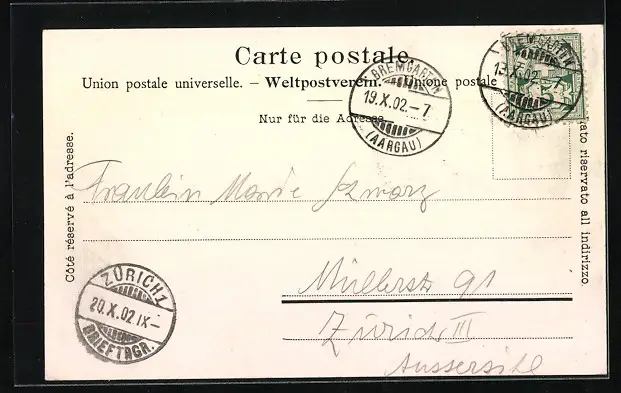 Carte postale.
Union postale universelle. – Weltpostverein. – Unione postale
Nur für die Adresse.
BREMGARTEN
19.X.02.–7
(AARGAU)
BREMGARTEN
19.X.02.–7
(AARGAU)
Côté réservé à l'adresse.
lato riservato all indirizzo.
Fräulein Marie
Müllerstr 91
Zürich III
Aussersihl
ZÜRICH 1
20.X.02.IX–
BRIEFTRGR.